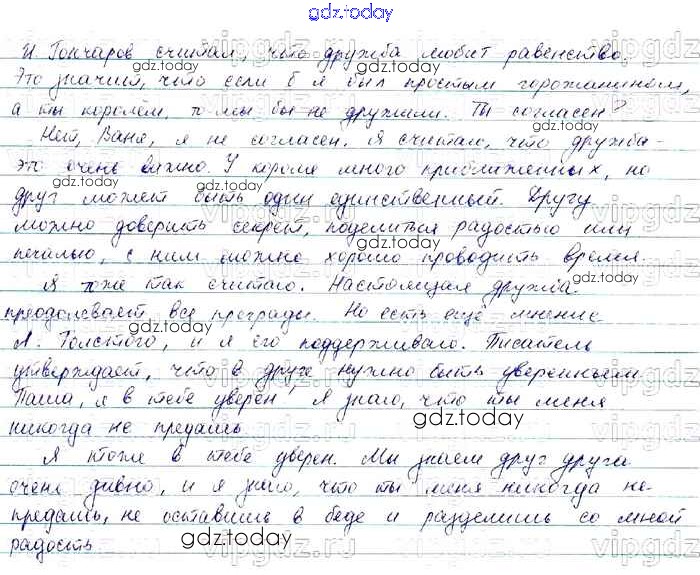 gdz.today
И. Гончаров считал, что дружба любит равенство.
Это значит, что если б я был простым горожанином,
а ты королём, то мы бы не дружили. Ты согласен?
Нет, Ваня, я не согласен. Я считаю, что дружба -
это очень важно. У короля много приближённых, но
друг может быть один единственный. Другу
можно доверить секрет, поделиться радостью или
печалью, с ним можно хорошо проводить время.
Я тоже так считаю. Настоящая дружба
преодолевает все преграды. Но есть ещё мнение
Л. Толстого, и я его поддерживаю. Писатель
утверждает, что в друге нужно быть уверенным.
Паша, я в тебе уверен, я знаю, что ты меня
никогда не предашь.
Я тоже в тебе уверен. Мы знаем друг друга
очень давно, и я знаю, что ты меня никогда не
предашь, не оставишь в беде и разделишь со мной
радость.